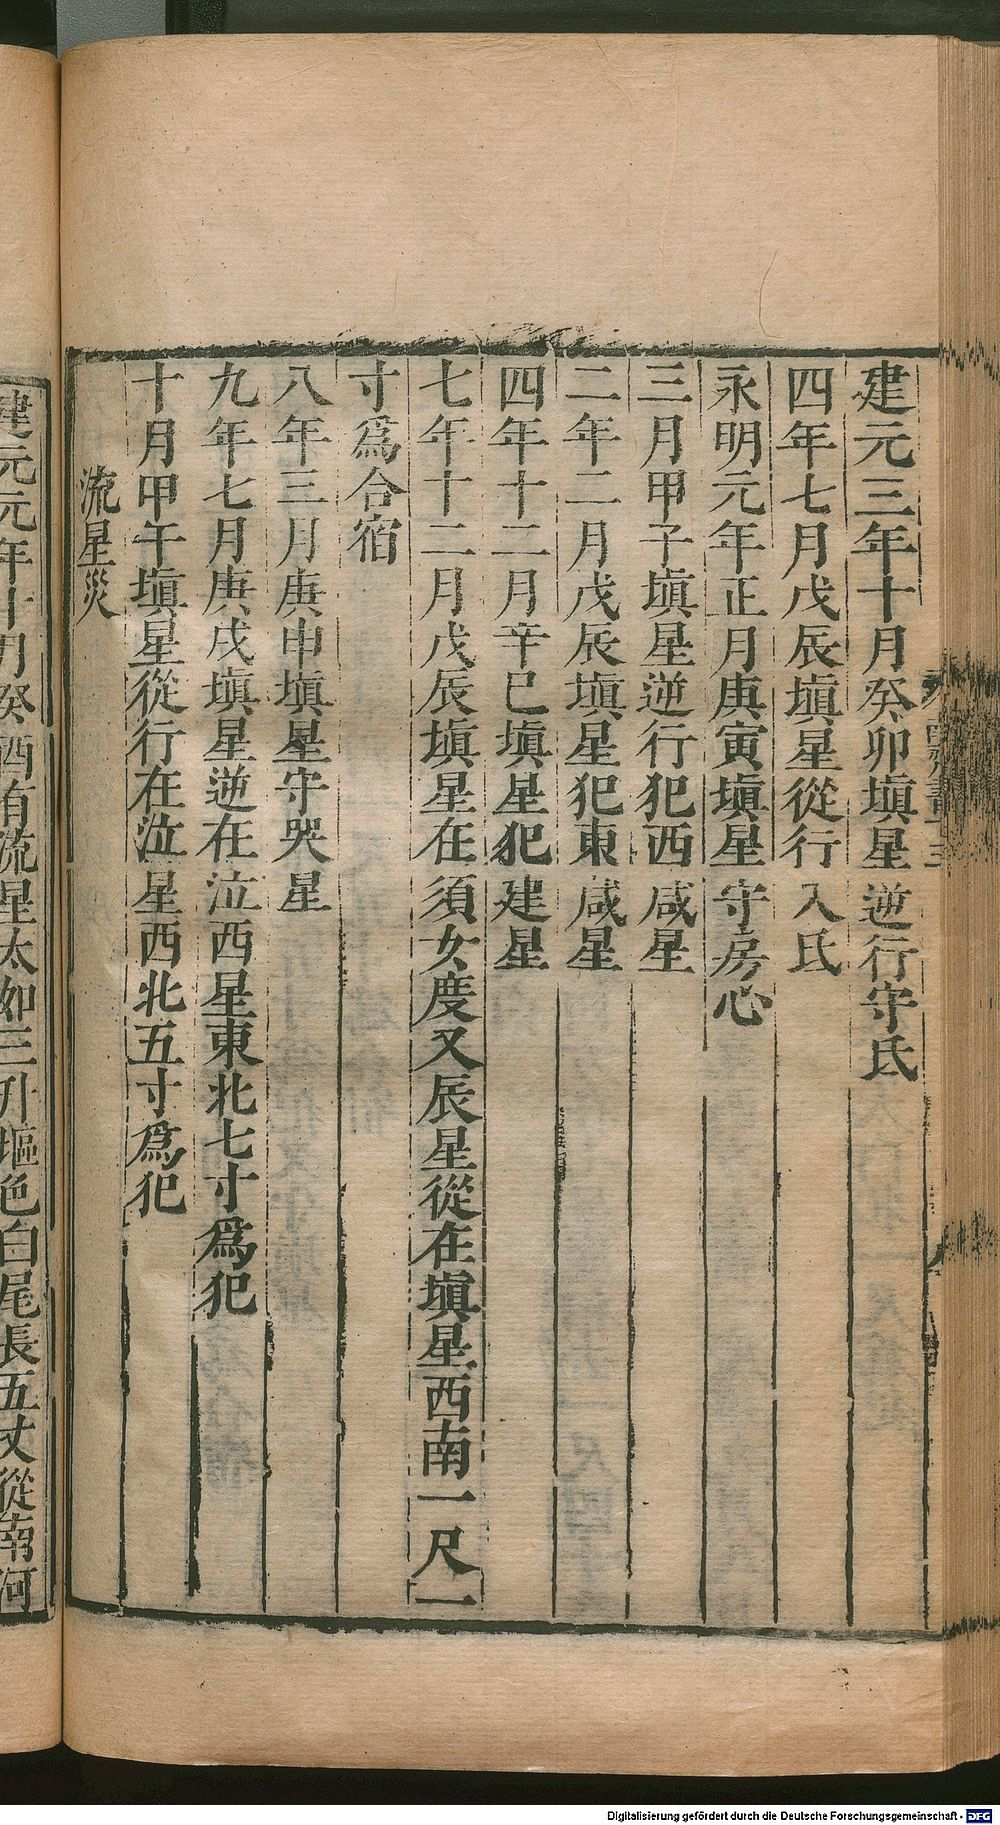 建元三年十月癸卯塡星逆行守氐
四年七月戊辰塡星從行入氐
永明元年正月庚寅塡星守房心
三月甲子塡星逆行犯西咸星
二年二月戊辰塡星犯東咸星
四年十二月辛巳塡星犯建星
七年十二月戊辰塡星在須女度又辰星從在塡星西南一尺一
寸爲合宿
八年三月庚申塡星守哭星
九年七月庚戌塡星逆在泣西星東北七寸爲犯
十月甲午塡星從行在泣星西北五寸爲犯
流星災
建元元年十月癸酉有流星大如三升塸色白尾長五丈從南河
Digitalisierung gefördert durch die Deutsche Forschungsgemeinschaft - DFG